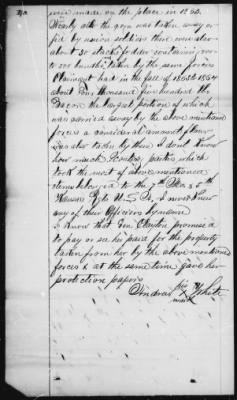 were made on the place in 1863.
Nearly all the corn was taken away or
fed by union soldiers there was also
about 30 stacks fodder containing
hundles taken by the same forces
Plaintiff had in the fall of 1863 & 1864
about One thousand five hundred lbs
Bacon the largest portion of which
was carried away by the above mentioned
forces a considerable amount flour
was also taken by them I dont know
how much Scouting parties, which
took the most of above mentioned
items belonged to the 7th Mo & 5th
Kansas Regts U.S. I never knew
any of their Officers by name
I know that Gen Clayton promised
to pay or see her paid for the property
taken from her by the above mentioned
forces & at the same time gave her
protection papers
Andrew his X White
mark